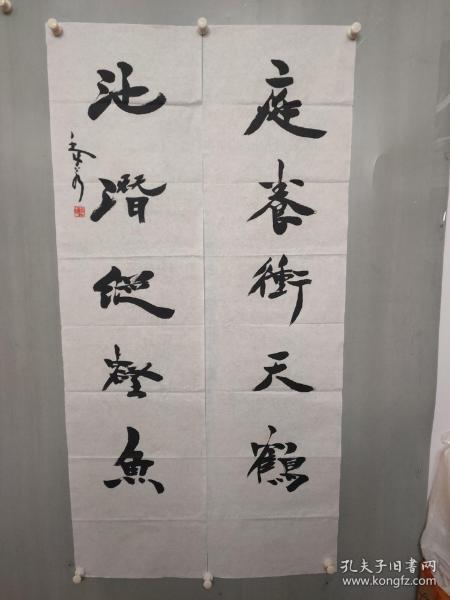 庭養衝天鶴
池潛縱壑魚
孔夫子旧书网
www.kongfz.com